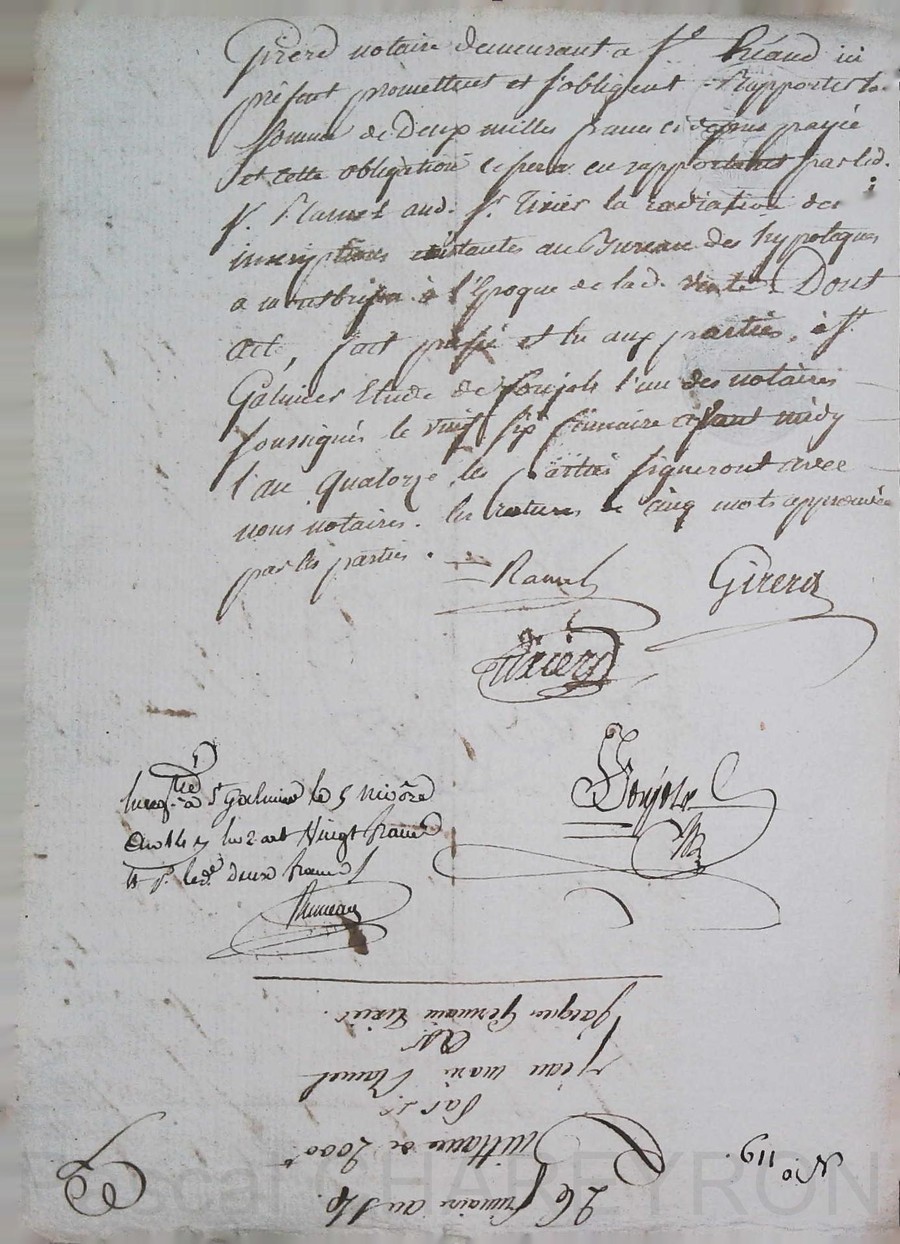 Girerd notaire demeurant a St héand ici
présent promettent et s'obligent Rapporter la
Somme de Deux milles francs ci dessus payée
et cette obligation cessera en rapportant par led.
Sr. Ramel aud. Sr. Tixier la radiation des
inscriptions existantes au Bureau des hypoteques
a à l'Epoque de lad. vente. Dont
acte, fait passé et lu aux parties, à St
Galmier Etude de Soujols l'un des notaires
soussignés le vingt six frimaire avant midy
l'an quatorze les parties signeront avec
nous notaires. les ratures de cinq mots approuvées
par les parties.
Ramel Girerd
Tixier
Soujols
Enregtré à St Galmier le 5 nivôre
an 14 Vingt francs
deux francs
No 119.
26 frimaire an 14.
Quittance de 2000 f
Par Sr.
Jean marie Ramel
A Sr.
Jacques Germain Tixier.
Pascal CHAPEYRON